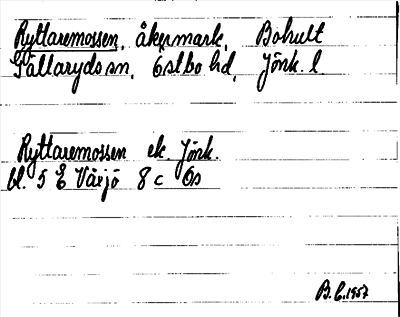 Ryttaremossen, åkermark, Bohult
Gällaryds sn, Östbo hd, Jönk. l
Ryttaremossen ek. Jönk.
bl. 5 E Växjö 8 c Ös
B.C. 1957